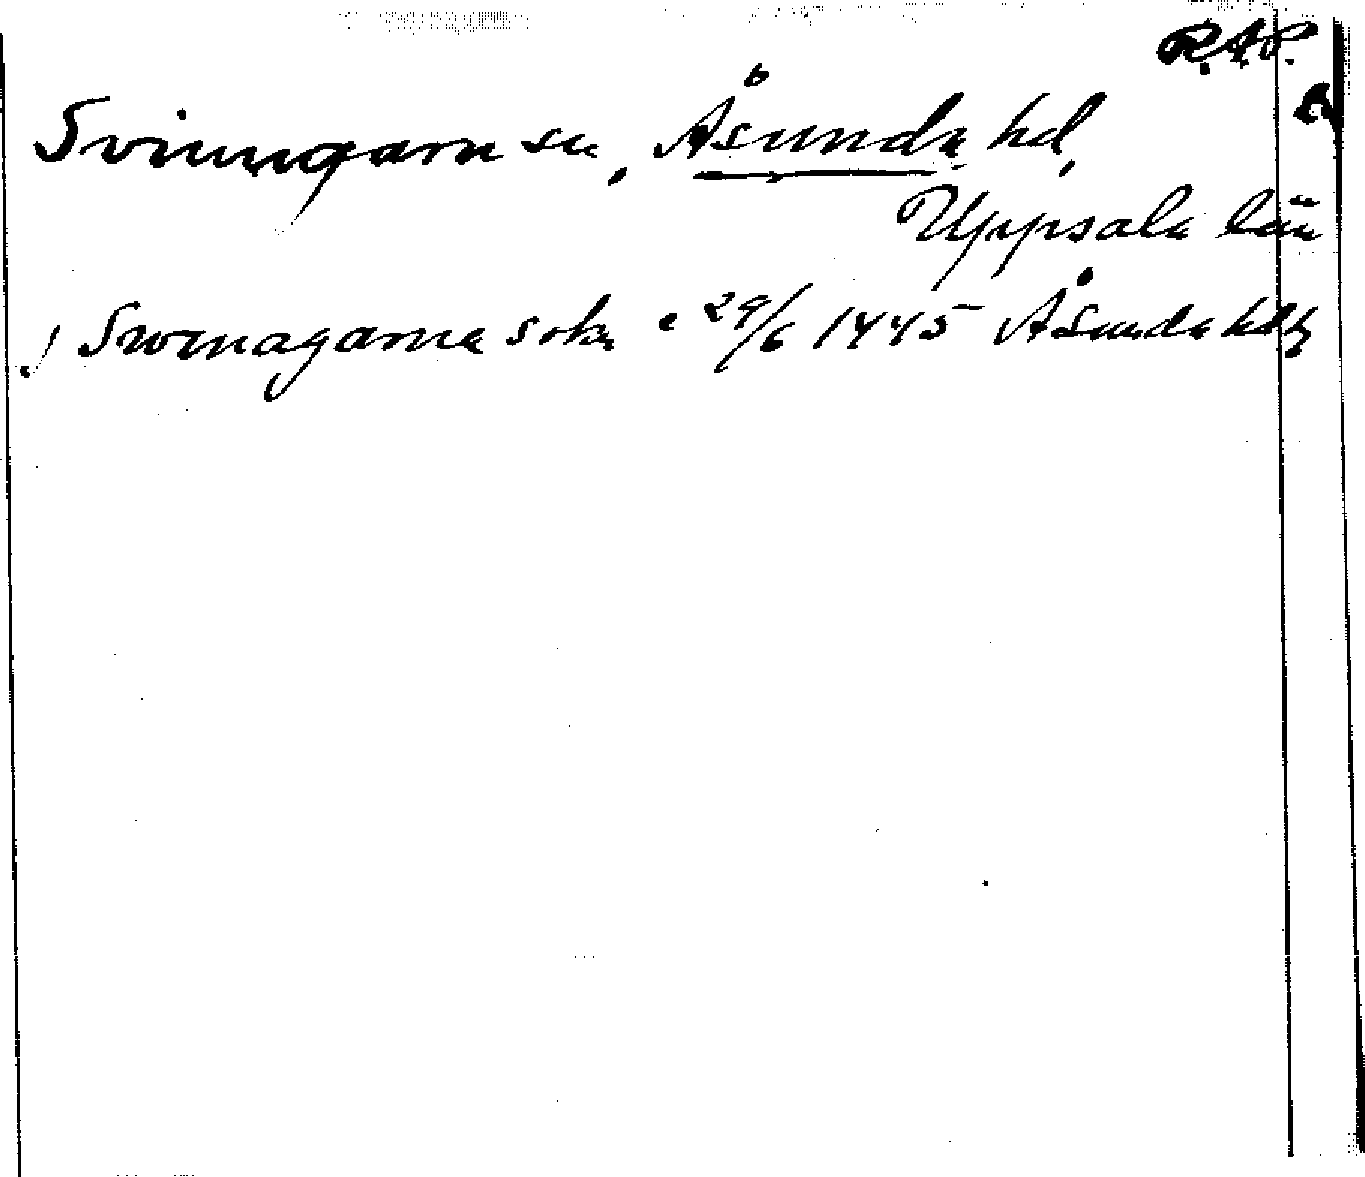 R.A.P.
Svinngarn sn, Åsunda hd,
Uppsala län
i Swinagarna sokn c 29/6 1445 Åsunda hd